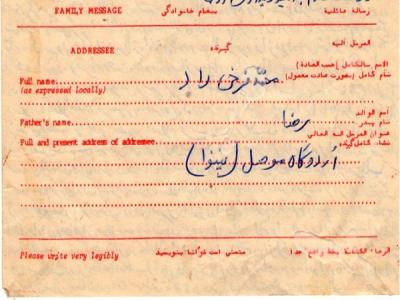 FAMILY MESSAGE پیغام خانوادگی رسالة عائلية
ADDRESSEE گیرنده المرسل الیه
الاسم بالكامل (حسب العادة)
Full name نام کامل (بصورت عادت معمول)
(as expressed locally)
محمد فرخی راد
اسم الوالد
Father's name نام پدر
رضا
عنوان المرسل اليه الحالي
Full and present address of addressee نشانی کامل گیرنده
اردوگاه موصل (نینوا)
Please write very legibly متمنی است خوانا بنویسید الرجاء الكتابة بخط واضح جدا